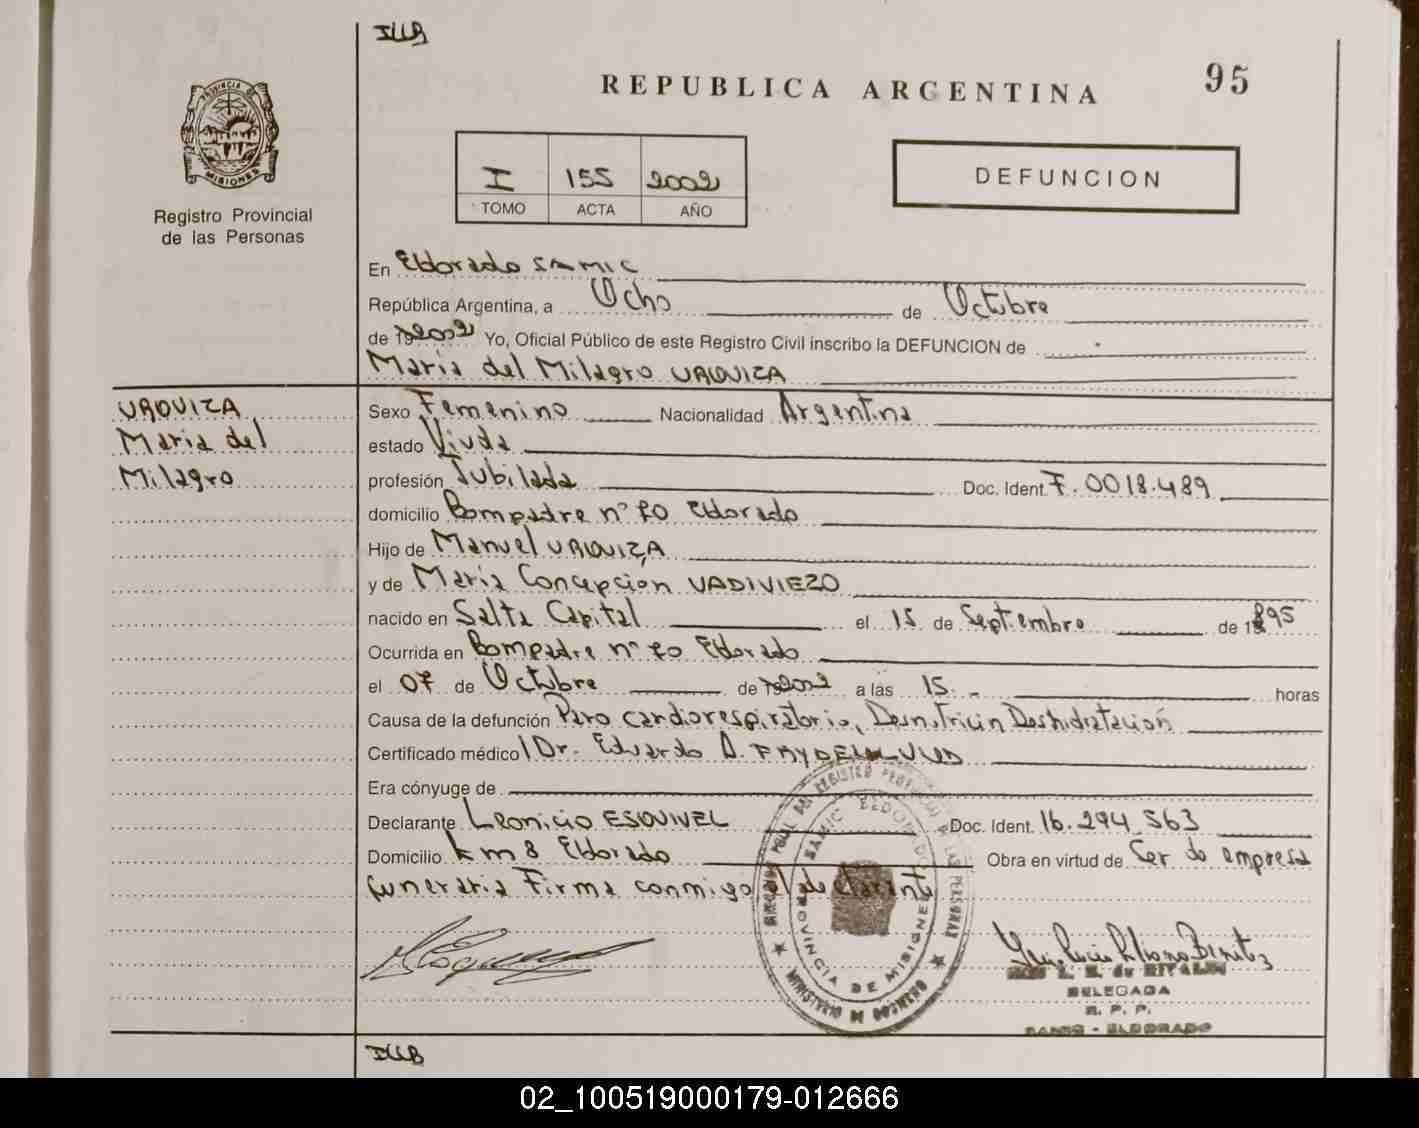 ILLB
REPUBLICA ARGENTINA
95
PROVINCIA DE
MISIONES
Registro Provincial
de las Personas
I 155 2002
TOMO ACTA AÑO
DEFUNCION
En Eldorado SAMIC
República Argentina, a Ocho de Octubre
de 19 2002 Yo, Oficial Público de este Registro Civil inscribo la DEFUNCION de
María del Milagro URQUIZA
URQUIZA
María del
Milagro
Sexo Femenino Nacionalidad Argentina
estado Viuda
profesión Jubilada Doc. Ident. F. 0018.489
domicilio Pompadre n° 20 Eldorado
Hijo de Manuel URQUIZA
y de María Concepción VADIVIEZO
nacido en Salta Capital el 15 de Septiembre de 1895
Ocurrida en Pompadre n° 20 Eldorado
el 07 de Octubre de 2002 a las 15.- horas
Causa de la defunción Paro cardiorespiratorio, Desnutricin Deshidratación
Certificado médico Dr. Eduardo A.
Era cónyuge de
Declarante Leonicio ESQUIVEL Doc. Ident. 16.294.563
Domicilio km 8 Eldorado Obra en virtud de Ser de empresa
funeraria Firma conmigo el declarante
REGISTRO PROVINCIAL DE LAS PERSONAS
SAMIC ELDORADO
PROVINCIA DE MISIONES
MINISTERIO DE GOBIERNO
DELEGADA
R. P. P.
SAMIC - ELDORADO
ILLB
02_100519000179-012666